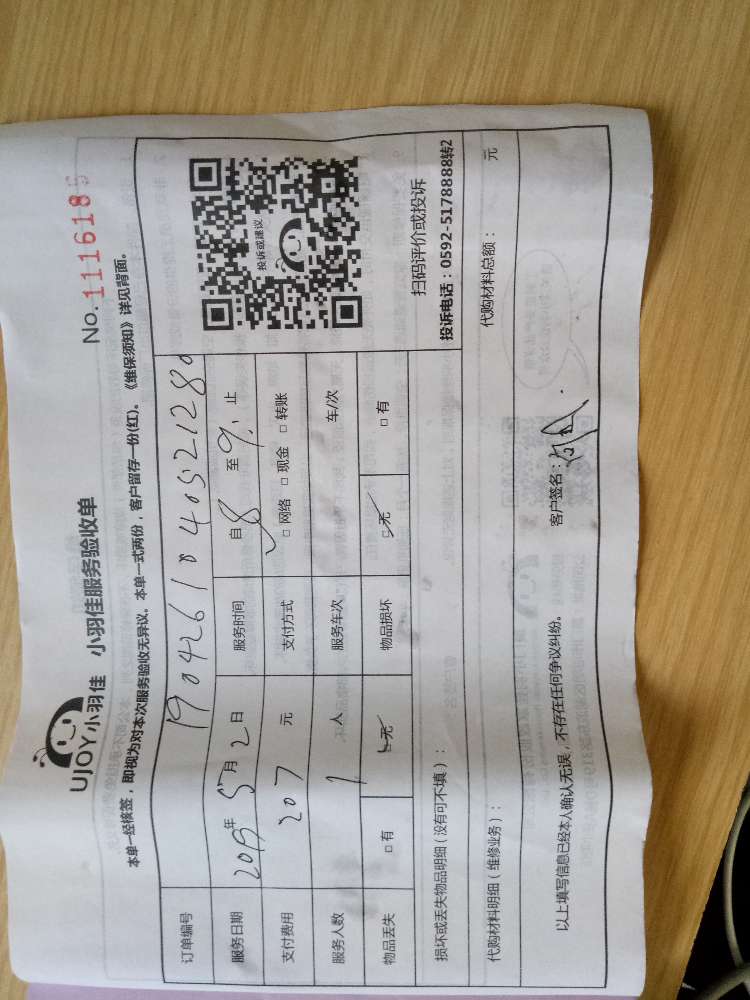 UJOY小羽佳 小羽佳服务验收单
No. 1116185
本单一经核签，即视为对本次服务验收无异议。本单一式两份，客户留存一份(红)。《维保须知》详见背面。
订单编号 1904261040521280
服务日期 2019年5月2日 服务时间 自8至9止
支付费用 207元 支付方式 □网络 □现金 □转账
服务人数 1人 服务车次 车/次
物品丢失 □有 □无 物品损坏 □无 □有
投诉或建议
扫码评价或投诉
投诉电话：0592-5178888转2
损坏或丢失物品明细（没有可不填）：
代购材料明细（维修业务）： 代购材料总额： 元
以上填写信息已经本人确认无误，不存在任何争议纠纷。 客户签名：